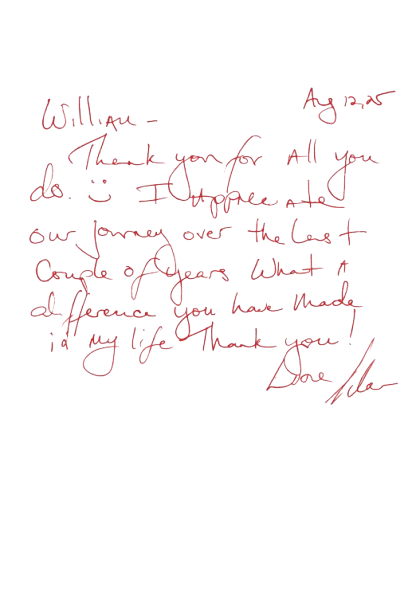 Aug 12, 25
William -
Thank you for All you
do. :) I Appreciate
our Journey over the Last
Couple of years What A
difference you have Made
in My life Thank you!